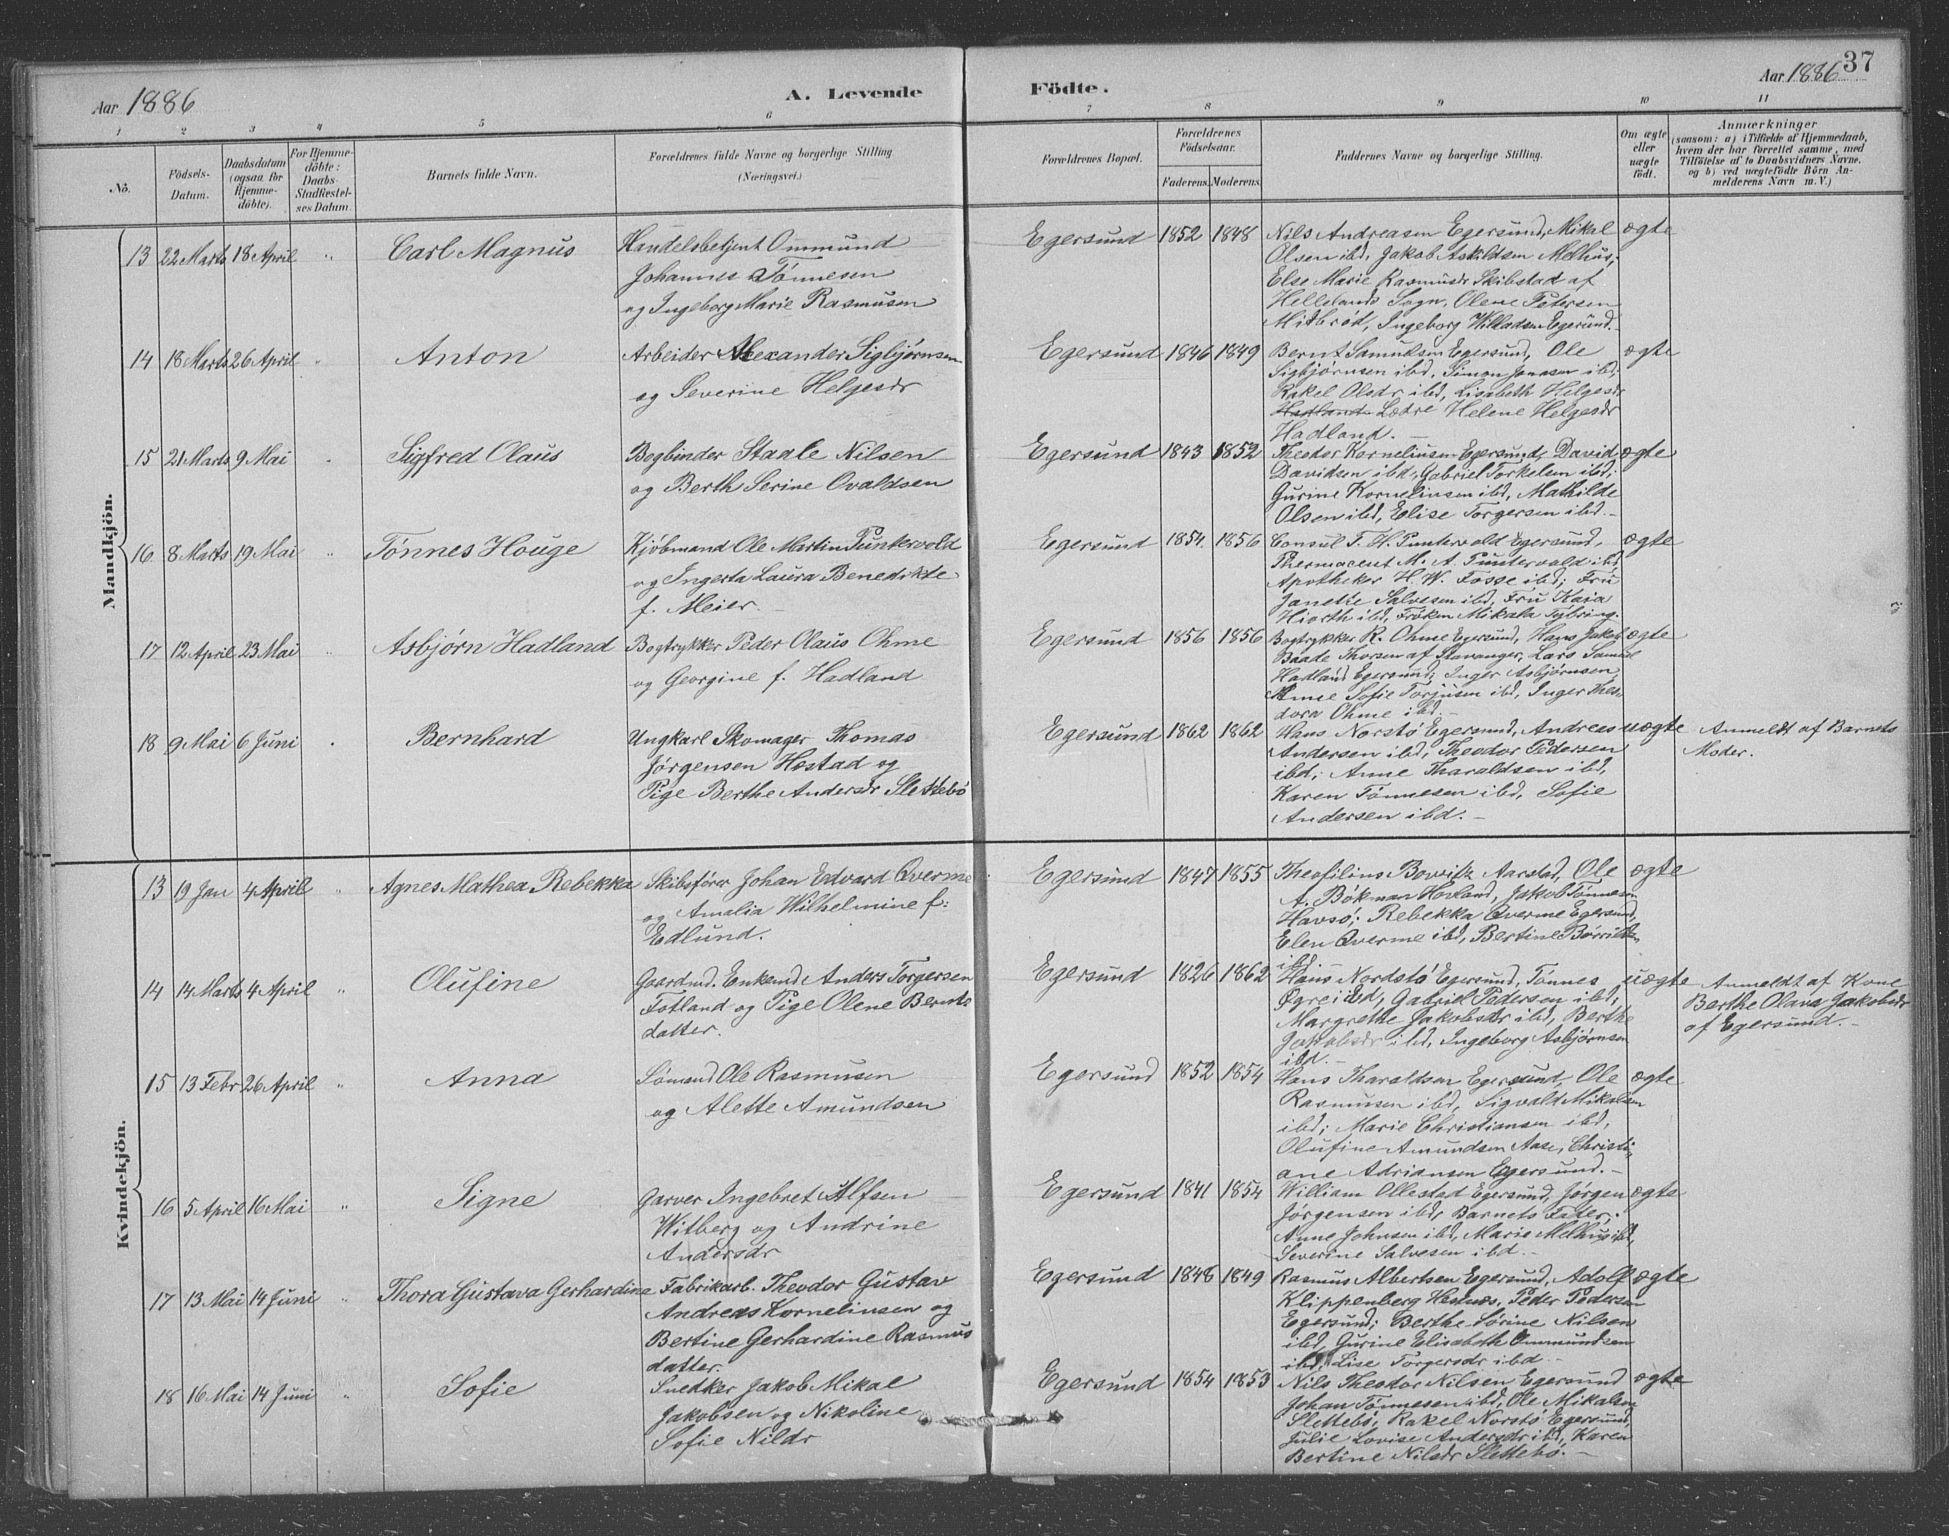 Aar 1886
A. Levende
Födte.
Aar 1886
37
1 2 3 4 5 6 7 8 9 10 11
No.
Födsels-
Datum.
Daabsdatum
(ogsaa for
Hjemme-
döbte).
For Hjemme-
döbte:
Daabs-
Stadfestel-
ses Datum.
Barnets fulde Navn.
Forældrenes fulde Navne og borgerlige Stilling
(Næringsvei.)
Forældrenes Bopæl.
Forældrenes
Födselsaar.
Faderens. Moderens.
Faddernes Navne og borgerlige Stilling.
Om ægte
eller
uægte
født.
Anmærkninger
(saasom: a) i Tilfælde af Hjemmedaab,
hvem der har forrettet samme, med
Tilföielse af to Daabsvidners Navne.
og b) ved uægtefödte Börn An-
melderens Navn m. V.)
Mandkjön.
13 22 Marts 18 April " Carl Magnus
Handelsbetjent Ommund
Johannes Tönnesen
og Ingeborg Marie Rasmusen
Egersund 1852 1848
Nils Andreasen Egersund, Mikal
Olsen ibd, Jakob Askildsen Melhus;
Else Marie Rasmusdr Skibstad af
Hellelands Sogn, Olene Petersen
Mitbröd, Ingeborg Willadsen Egersund.
ægte
14 18 Marts 26 April " Anton
Arbeider Alexander Sigbjørnsen
og Severine Helgesdr
Egersund 1846 1849
Bernt Samuelsen Egersund, Ole
Sigbjørnsen ibd, Simon Jonasen ibd;
Rakel Olsdr ibd, Lisabeth Helgesdr
Hadland Lædre Helene Helgesdr
Hadland. —
ægte
15 21 Marts 9 Mai " Sigfred Olaus
Bogbinder Staale Nilsen
og Berth Serine Ovaldsen
Egersund 1843 1852
Theodor Korneliusen Egersund, David
Davidsen ibd, Gabriel Torkelsen ibd;
Gurine Korneliusen ibd, Mathilde
Olsen ibd, Elise Torgersen ibd. —
ægte
16 8 Marts 19 Mai " Tönnes Houge
Kjöbmand Ole Martin Puntervold
og Ingerta Laura Benedikte
f. Meier.
Egersund 1854. 1856
Consul T. H. Puntervold Egersund,
Phermaceut M. A. Puntervold ibd
Apotheker H. W. Fosse ibd; Fru
Janette Salvesen ibd, Fru Kaia
Hiorth ibd, Fröken Mikala Tybring.
ægte
17 12 April 23 Mai " Asbjørn Hadland
Bogtrykker Peder Olaus Ohme
og Georgine f. Hadland
Egersund 1856 1856
Bogtrykker R. Ohme Egersund, Hans Jakob
Baade Thorsen af Stavanger, Lars Samuel
Hadland Egersund; Inger Asbjörnsen,
Anne Sofie Torjusen ibd, Inger Theo-
dora Ohme ibd.
ægte
18 9 Mai 6 Juni " Bernhard
Ungkarl Skomager Thomas
Jörgensen Hæstad og
Pige Berthe Andersdr Slettebö
Egersund 1862 1862
Hans Norstö Egersund, Andreas
Andersen ibd, Theodor Pedersen
ibd; Anne Tharaldsen ibd,
Karen Tönnesen ibd, Sofie
Andersen ibd. —
uægte
Anmeldt af Barnets
Moder.
Kvindekjön.
13 19 Jan 4 April " Agnes Mathea Rebekka
Skibsförer Johan Edvard Qverme
og Amalia Wilhelmine f:
Edlund.
Egersund 1847 1855
Theofilius Aarstad, Ole
A. Bökman Hovland, Jakob Tönnesen
Havsö; Rebekka Qverme Egersund,
Elen Qverme ibd, Bertine
ibd.
ægte
14 14 Marts 4 April " Olufine
Gaardmd. Enkemd Anders Torgersen
Fotland og Pige Olene Bernts
datter.
Egersund 1826 1862
Hans Nordstö Egersund, Tönnes
Øgreid ibd, Gabriel Pedersen ibd;
Margrethe Jakobsdr ibd, Berthe
Jakobsdr ibd, Ingeborg Asbjörnsen
ibd. —
uægte
Anmeldt af Kone
Berthe Olava Jakobsdr
af Egersund. —
15 13 Febr 26 April " Anna
Sömand Ole Rasmusen
og Alette Amundsen
Egersund 1852 1854
Hans Tharaldsen Egersund, Ole
Rasmusen ibd, Sigvald Mikalsen
ibd; Marie Christiansen ibd,
Olufine Amundsen Aase, Christi-
ane Adriansen Egersund. —
ægte
16 5 April 16 Mai " Signe
Garver Ingebret Alfsen
Witberg og Andrine
Andersdr
Egersund 1841 1854
William Ollestad Egersund, Jörgen
Jörgensen ibd, Barnets Fader;
Anne Johnsen ibd, Marie Melhus ibd,
Severine Salvesen ibd. —
ægte
17 13 Mai 14 Juni " Thora Gustava Gerhardine
Fabrikarb. Theodor Gustav
Andreas Korneliusen og
Bertine Gerhardine Rasmus
datter.
Egersund 1848 1849
Rasmus Albertsen Egersund, Adolf
Klippenberg Hestnæs, Peder Pedersen
Egersund; Berthe Serine Nilsen
ibd, Gurine Elisabeth Ommundsen
ibd, Lise Torgersdr ibd —
ægte
18 16 Mai 14 Juni " Sofie
Snedker Jakob Mikal
Jakobsen og Nikoline
Sofie Nilsdr
Egersund 1854 1853
Nils Theodor Nilsen Egersund
Johan Tönnesen ibd, Ole Mikalsen
Slettebö, Rakel Norstö Egersund,
Julie Lovise Andersdr ibd, Karen
Bertine Nilsdr Slettebö. —
ægte